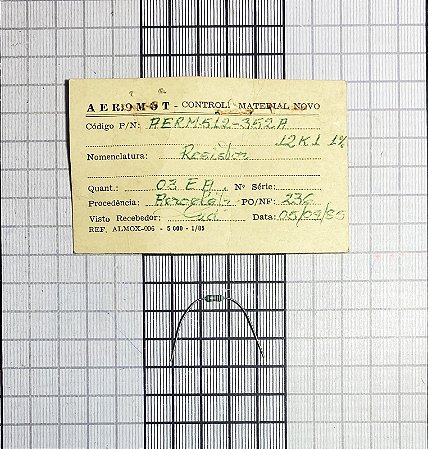 AEROMOT - CONTROLE MATERIAL NOVO
Código P/N: AERM512-352A
12K1 1%
Nomenclatura: Resistor
Quant.: 03 EA Nº Série:
Procedência: PO/NF: 236
Visto Recebedor: Data: 05/09/85
REF. ALMOX-006 - 5 000 - 1/85